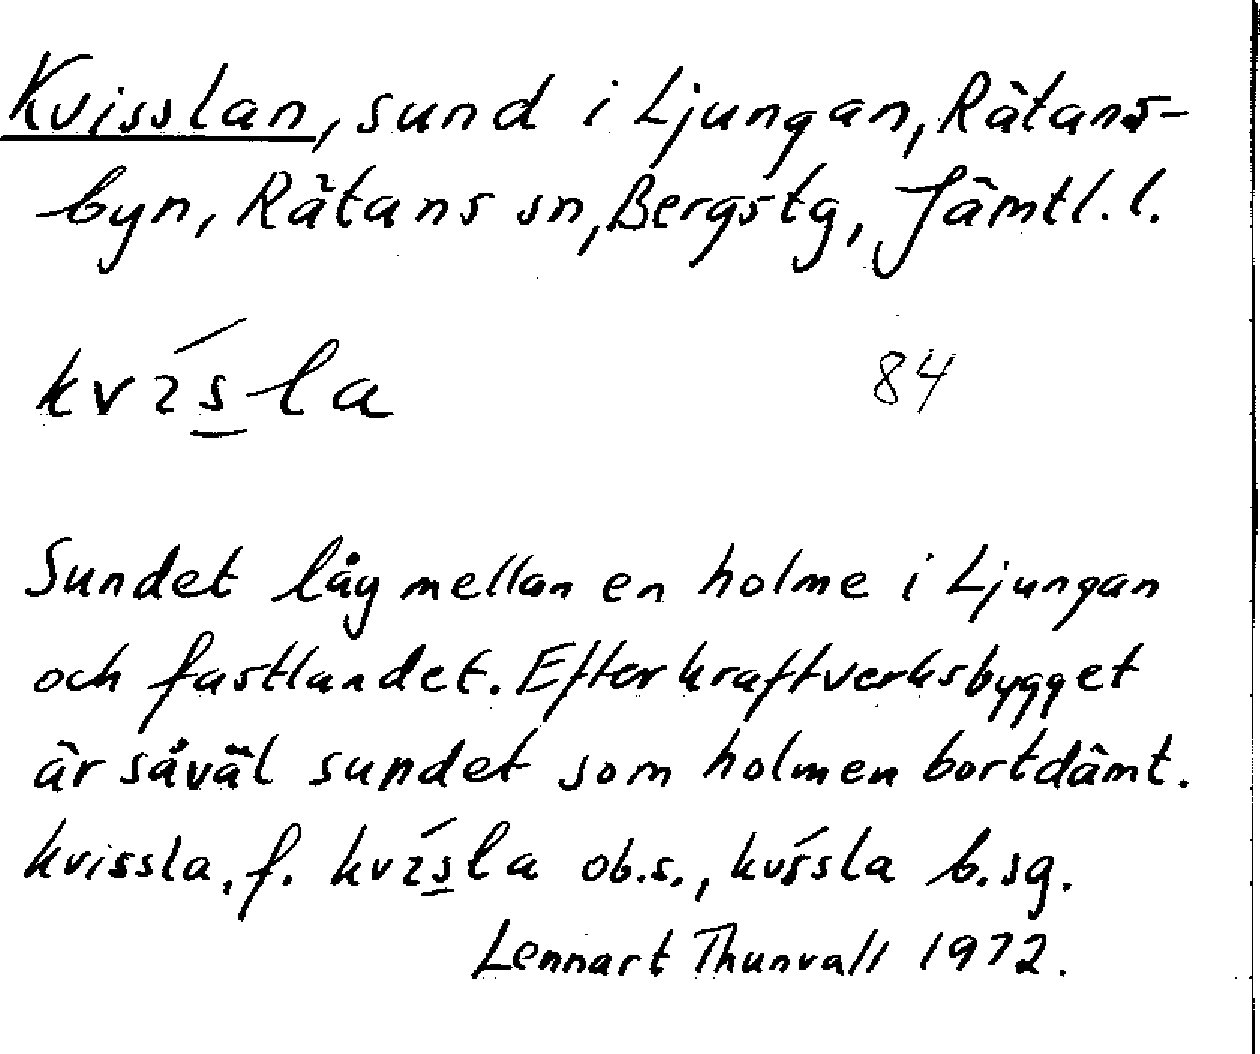 Kvisslan, sund i Ljungan, Rätans-
byn, Rätans sn, Bergstg, Jämtl. l.
kvi̇́s̲la 84
Sundet låg mellan en holme i Ljungan
och fastlandet. Efter kraftverksbygget
är såväl sundet som holmen bortdämt.
kvissla, f. kvís̲la ob.s., kvíssla b.sg.
Lennart Thunvall 1972.